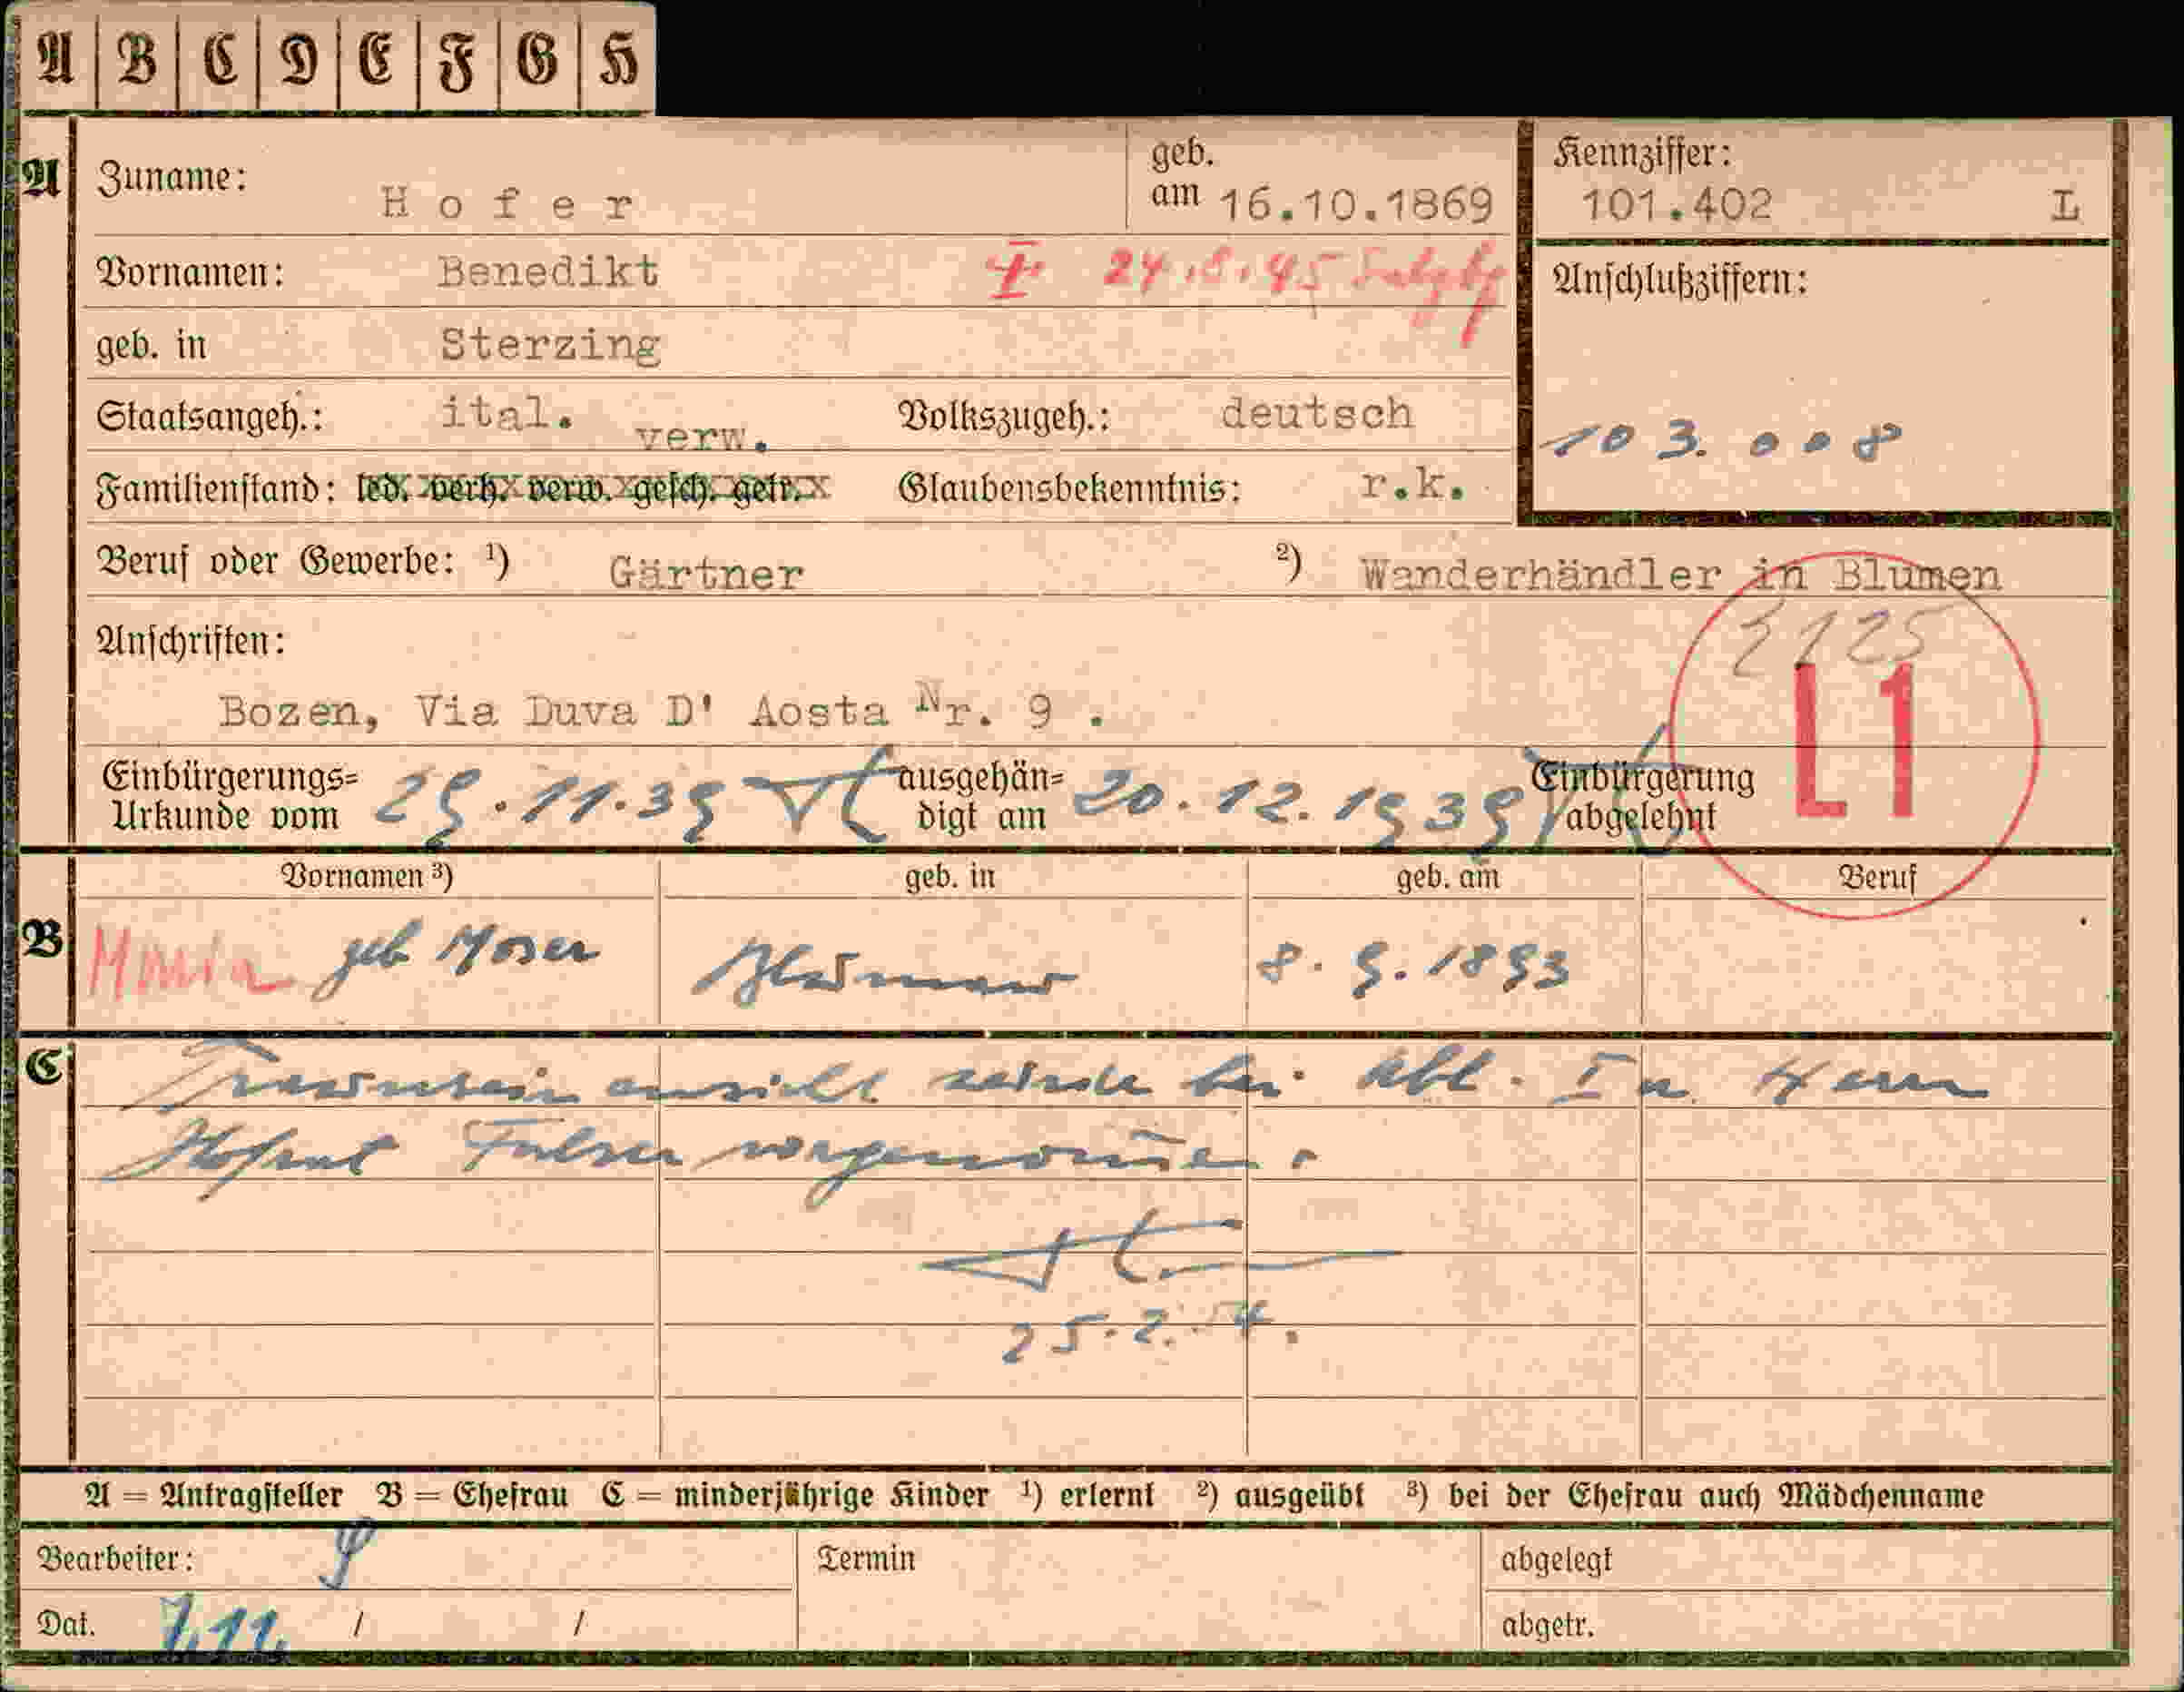 A B C D E F G H
A Zuname: Hofer geb. am 16.10.1869 Kennziffer: 101.402 L
Vornamen: Benedikt † 24.8.45 Anschlußziffern:
geb. in Sterzing
Staatsangeh.: ital. verw. Volkszugeh.: deutsch 103.008
Familienstand: led. verh. verw. gesch. getr. Glaubensbekenntnis: r.k.
Beruf oder Gewerbe: ¹) Gärtner ²) Wanderhändler in Blumen
Anschriften: 2125
L1
Bozen, Via Duva D' Aosta Nr. 9 .
Einbürgerungs= ausgehän= Einbürgerung
Urkunde vom 29.11.39 digt am 20.12.1939 abgelehnt
Vornamen ³) geb. in geb. am Beruf
B Maria geb Moser Blumau 8.9.1893
C Trauschein ansicht wurde bei Abt. I u. Herrn
Hofrat Falser vorgenommen.
25.2.
A = Antragsteller B = Ehefrau C = minderjährige Kinder ¹) erlernt ²) ausgeübt ³) bei der Ehefrau auch Mädchenname
Bearbeiter: Termin abgelegt
Dat. 7.11. / / abgetr.